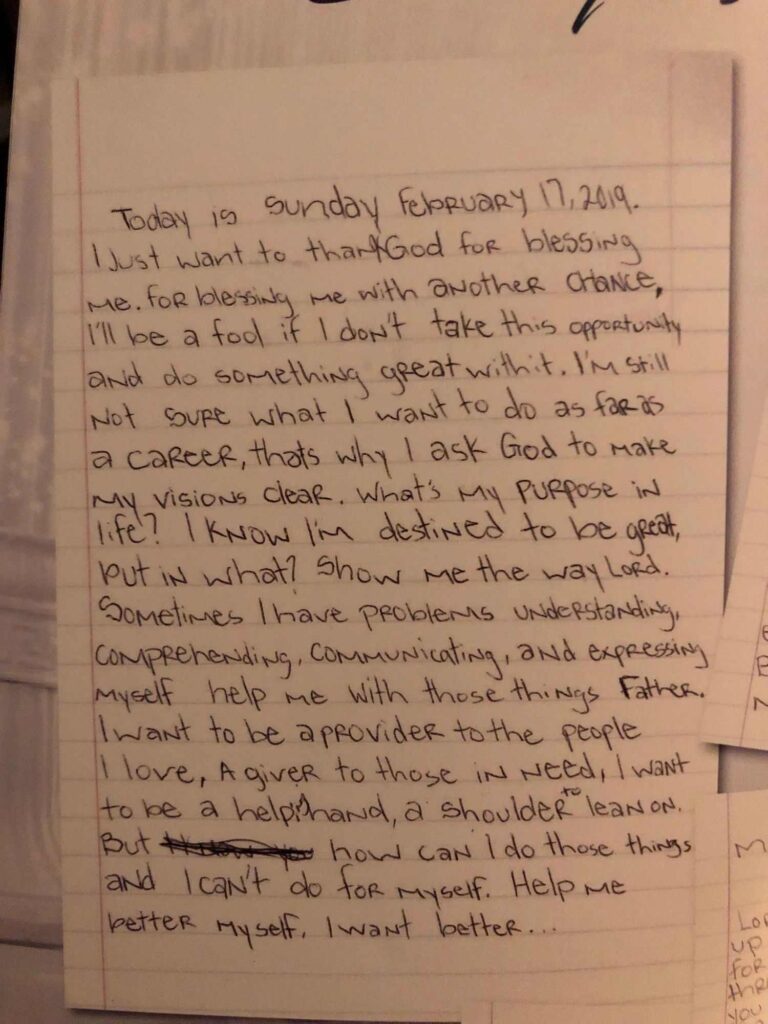 Today is Sunday February 17, 2019.
I Just want to thank God for blessing
me. for blessing me with another chance,
I'll be a fool if I don't take this opportunity
and do something great with it. I'm still
not sure what I want to do as far as
a career, thats why I ask God to make
my visions clear. What's my purpose in
life? I know I'm destined to be great,
but in what? Show me the way Lord.
Sometimes I have problems understanding,
comprehending, communicating, and expressing
myself help me with those things Father.
I want to be a provider to the people
I love, A giver to those in need, I want
to be a helping hand, a shoulder to lean on.
But how can I do those things
and I can't do for myself. Help me
better myself. I want better...
Lor
up
for
thr
you